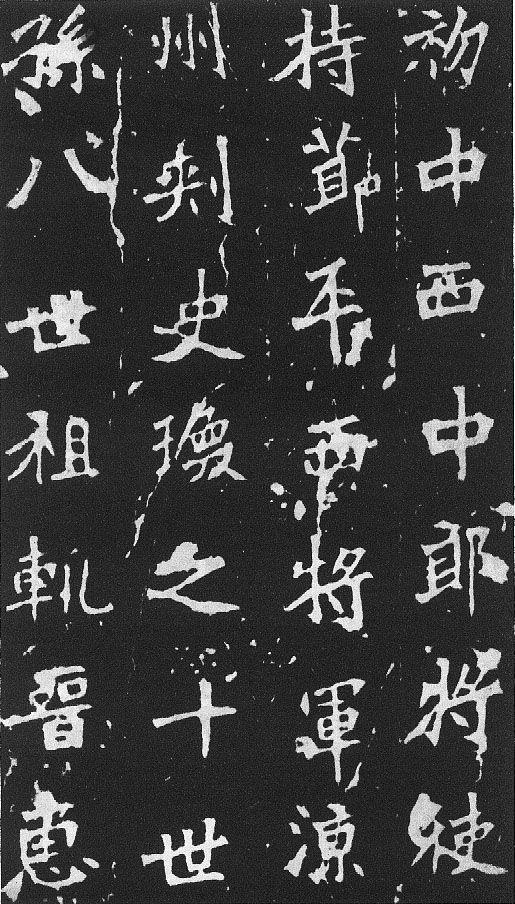 初中西中郎将使
持節平西将軍凉
州刾史瓊之十世
孫八世祖軌晉惠